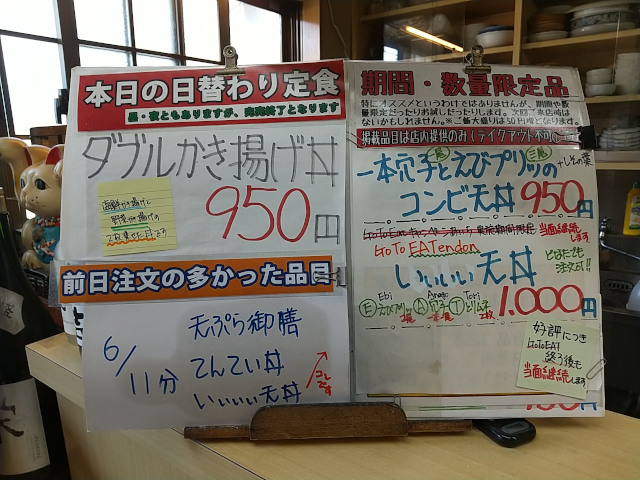 本日の日替わり定食
昼・夜ともありますが、完売終了となります
ダブルかき揚げ丼
海鮮かき揚げと
野菜かき揚げの
2枚乗せた丼です
950円
前日注文の多かった品目
6/11分
天ぷら御膳
てんてい丼
いいいい天丼
コレです
期間・数量限定品
特にオススメというわけではありませんが、期間や数
量限定だからお試しだったりします。次回ご来店時は
ないかもしれません。※ご飯大盛りは50円増となります
掲載品目は店内提供のみ(テイクアウト不可)
一本穴子とえびプリッツの
コンビ天丼
+しその葉
950円
GoTo EATendon
当面継続
します
いいいい天丼
どなたでも
注文可!!
Ebi
Anago
Tori
E
えびプリッツ
A
穴子
T
とりムネ
1.000円
好評につき
GoToEAT
終了後も
当面継続します